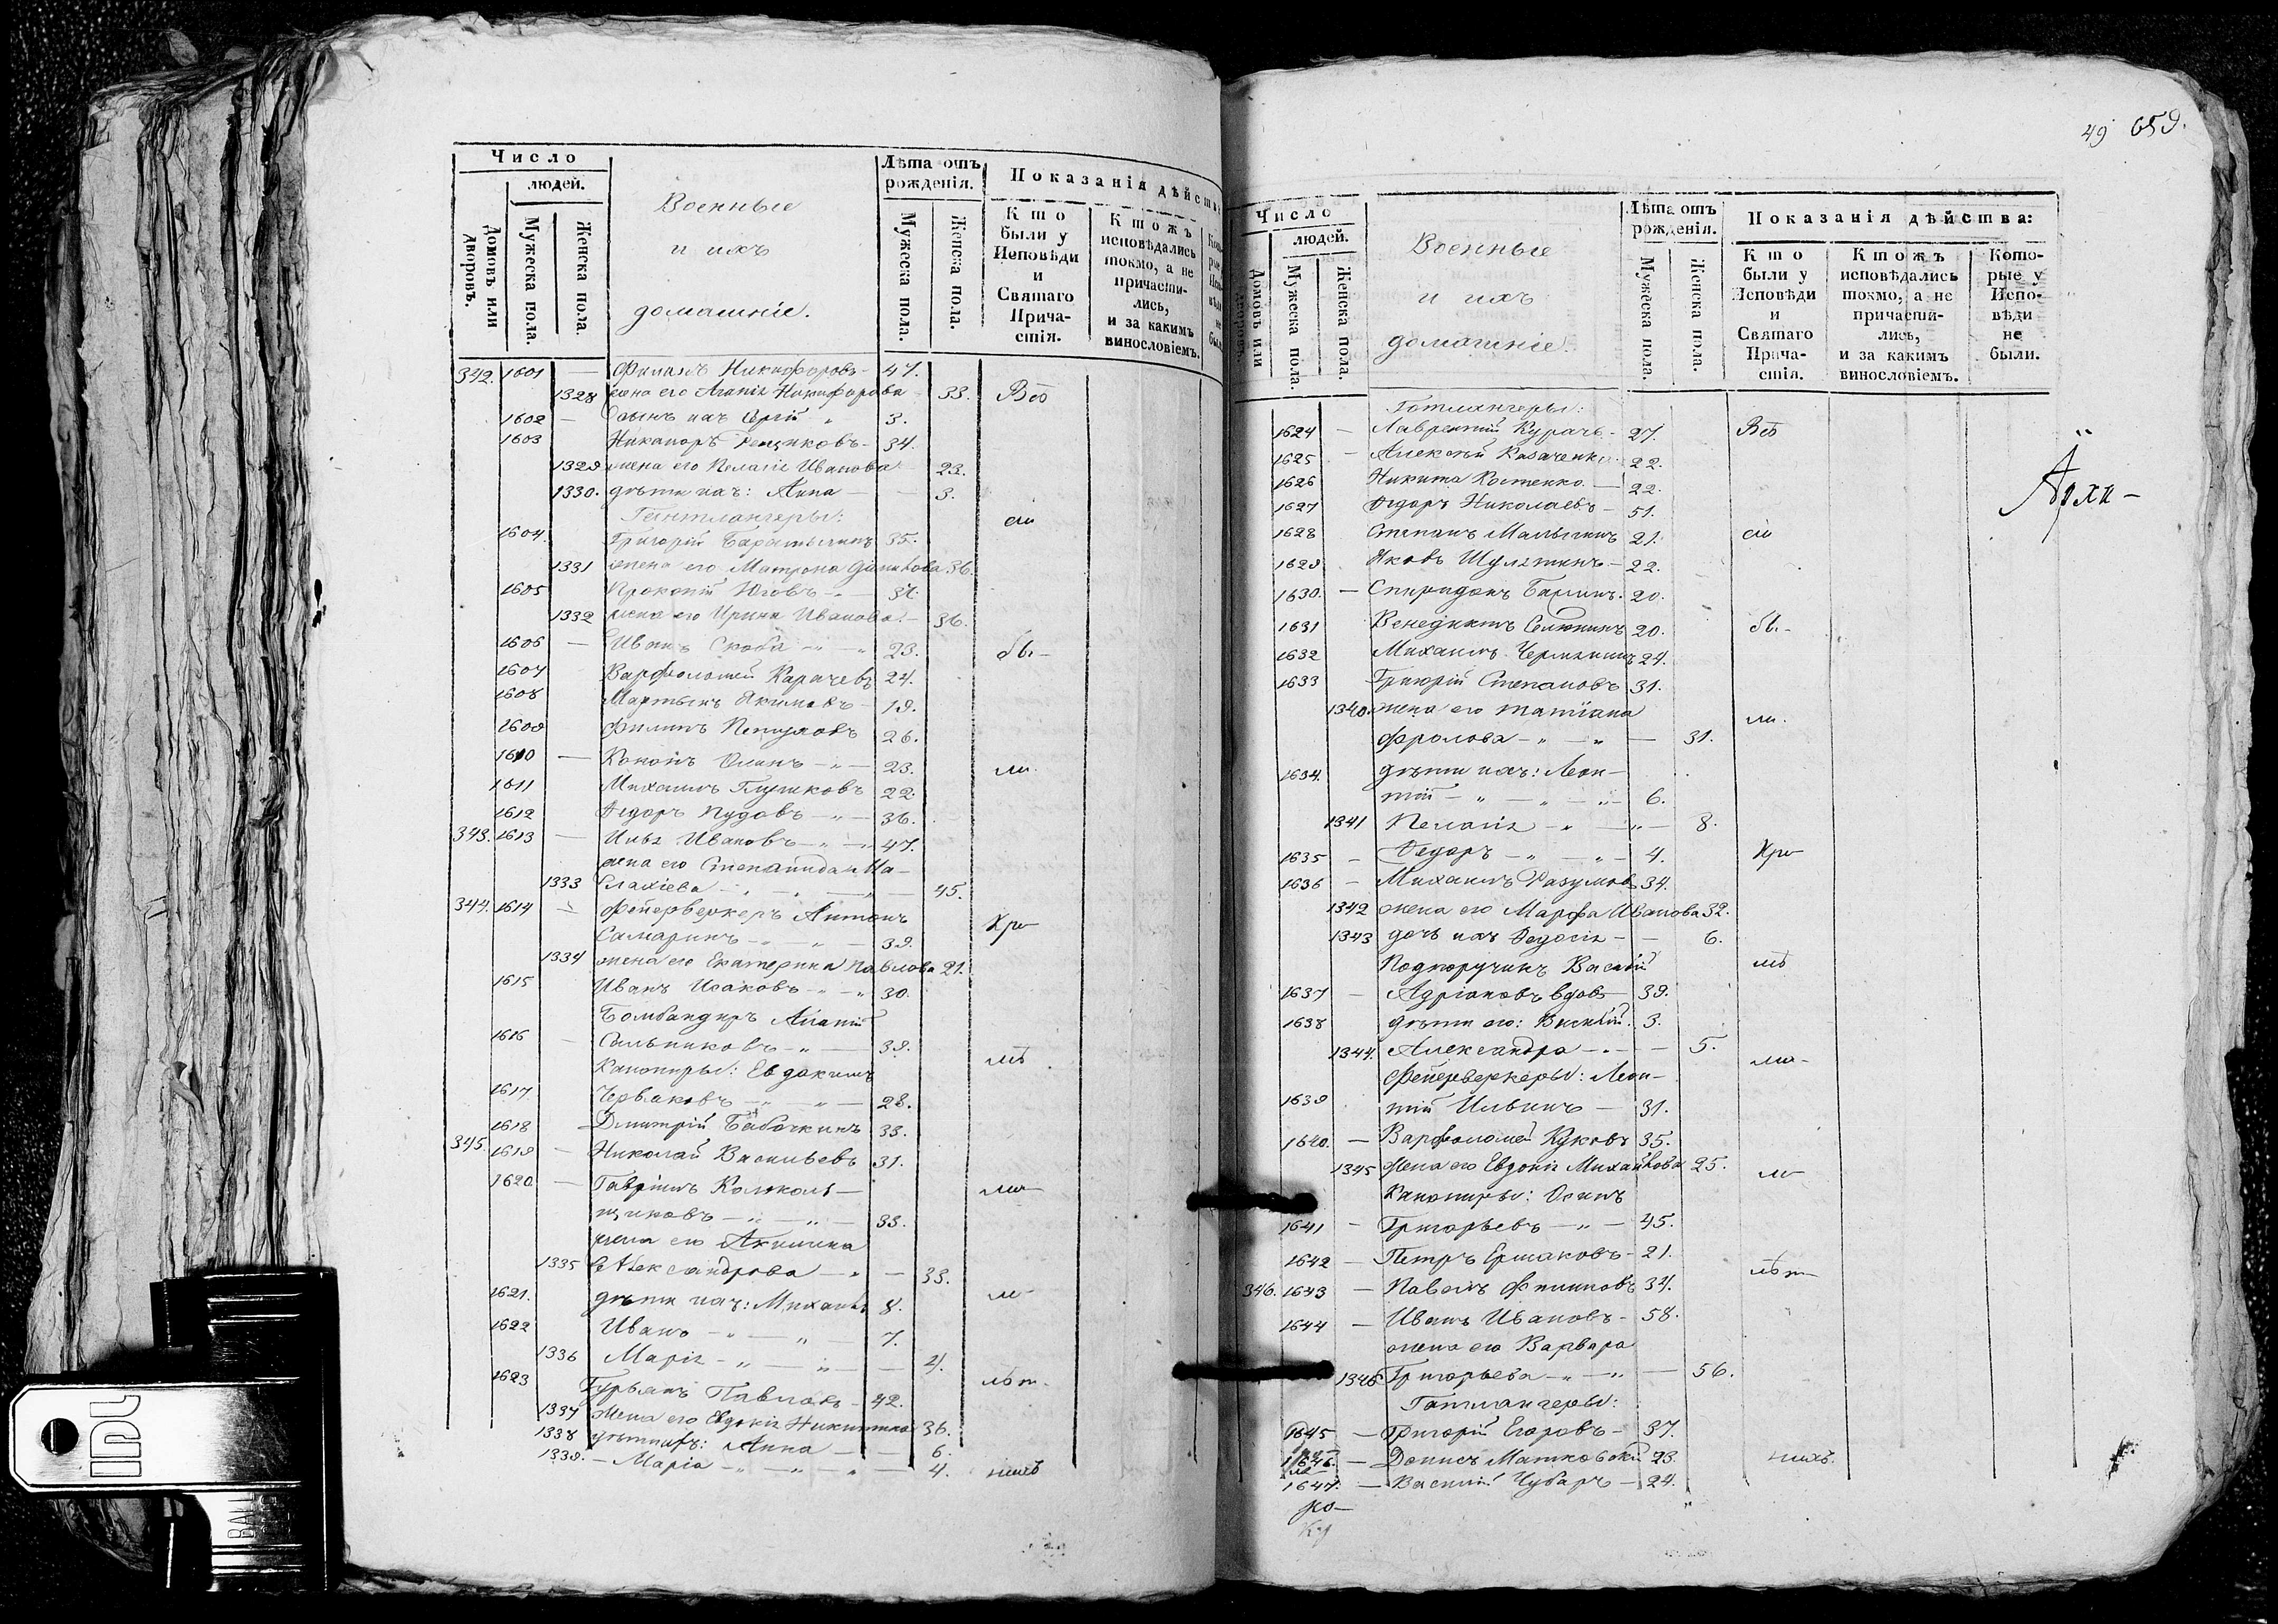 Число
людей.
Домовъ или дворовъ.
Мужеска пола.
Женска пола.
Военные
и ихъ
домашніе.
Лѣта отъ рожденія.
Мужеска пола.
Женска пола.
Показанія дѣйства
Кто были у Исповѣди и Святаго Причастія.
Ктожъ исповѣдались токмо, а не причастились, и за какимъ винословіемъ.
342. 1601 — Никифоровъ — 47.
1328 жена его Агапія Никифорова 33. Всѣ
1602 — сынъ ихъ Сергій 3.
1603 Никаноръ 34.
1329 жена его Пелагія Иванова 23.
1330. дѣти ихъ: Анна — 3.
сіи
1604. Григорій 35.
1331 жена его Матрона 36.
1605 Прокопій
1332 жена его Ирина Иванова — 36.
1606 — Иванъ Скоба 23. бы-
1607 Варфоломей Карачевъ 24.
1608 Мартынъ Якимовъ — 19.
1609 Филипъ Петуховъ 26.
1610 — Кононъ 23. ли
1611 Михаилъ Глушковъ 22.
1612 Федоръ Пудовъ — 36.
343. 1613 — Илья Ивановъ — 47.
жена его Степанида Ма-
1333 лахіева 45.
344. 1614 — Фейерверкеръ Антонъ Хри-
Самаринъ 39.
1334 жена его Екатерина Павлова 21.
1615 Иванъ Исаковъ 30.
Бомбандиръ
1616 — Сальниковъ 39.
Канониры: Евдокимъ
1617 Червяковъ 28.
1618 Дмитрій Бабочкинъ 33.
345. 1619 — Николай Васильевъ 31.
1620 — Гавріилъ Колоколь-
щиковъ 33.
жена его Акилина
1335 Александрова 33.
1621. дѣти ихъ: Михаилъ 8.
1622 Иванъ 7.
1336 Марія
1623 Гурьянъ Павловъ 42.
1337 жена его Евдокія Никитина 36.
1338 дѣти ихъ: Анна 6.
1339. — Марія 4.
49 659.
Число
людей.
Домовъ или дворовъ.
Мужеска пола.
Женска пола.
Военные
и ихъ
домашніе.
Лѣта отъ рожденія.
Мужеска пола.
Женска пола.
Показанія дѣйства:
Кто были у Исповѣди и Святаго Причастія.
Ктожъ исповѣдались токмо, а не причастились, и за какимъ винословіемъ.
Которые у Исповѣди не были.
Готлангеры:
1624 — Лаврентій Курачъ — 27. Всѣ
1625 — Алексѣй Казаченко 22.
1626 Никита Костенко — 22.
Архи-
1627 Федоръ Николаевъ — 51.
1628 Степанъ Малыгинъ 21. сіи
1629 Яковъ Шулятинъ — 22.
1630. — Спиридонъ 20.
1631 Венедиктъ 20. бы-
1632 Михаилъ 24.
1633 Григорій Степановъ 31.
1340. жена его Татіана ли.
Фролова — 31.
1634. дѣти ихъ: Леон-
тій 6.
1341 Пелагія 8.
1635 — Федоръ 4. Хри-
1636 — Михаилъ Разумовъ 34.
1342 жена его Марфа Иванова 32.
1343 дочь ихъ Федосія — 6.
Подпоручикъ Василій
1637 — Адріановъ вдовъ 39.
1638 дѣти его: Василій 3.
1344. Александра — 5.
Фейерверкеры: Леон-
1639 тій Ильинъ — 31.
1640. — Варфоломей Жуковъ 35.
1345 жена его Евдокія Михайлова 25.
Канониры: Осипъ
1641 — Григорьевъ — 45.
1642 — Петръ Ермаковъ — 21.
346. 1643 — Павелъ 34.
1644 — Иванъ Ивановъ — 58.
жена его Варвара
1346 Григорьева — 56.
Гатлангеры:
1645 — Григорій Егоровъ — 37.
1646. — Денисъ Матковскій 23. нихъ.
1647. — Василій Чубаръ — 24.